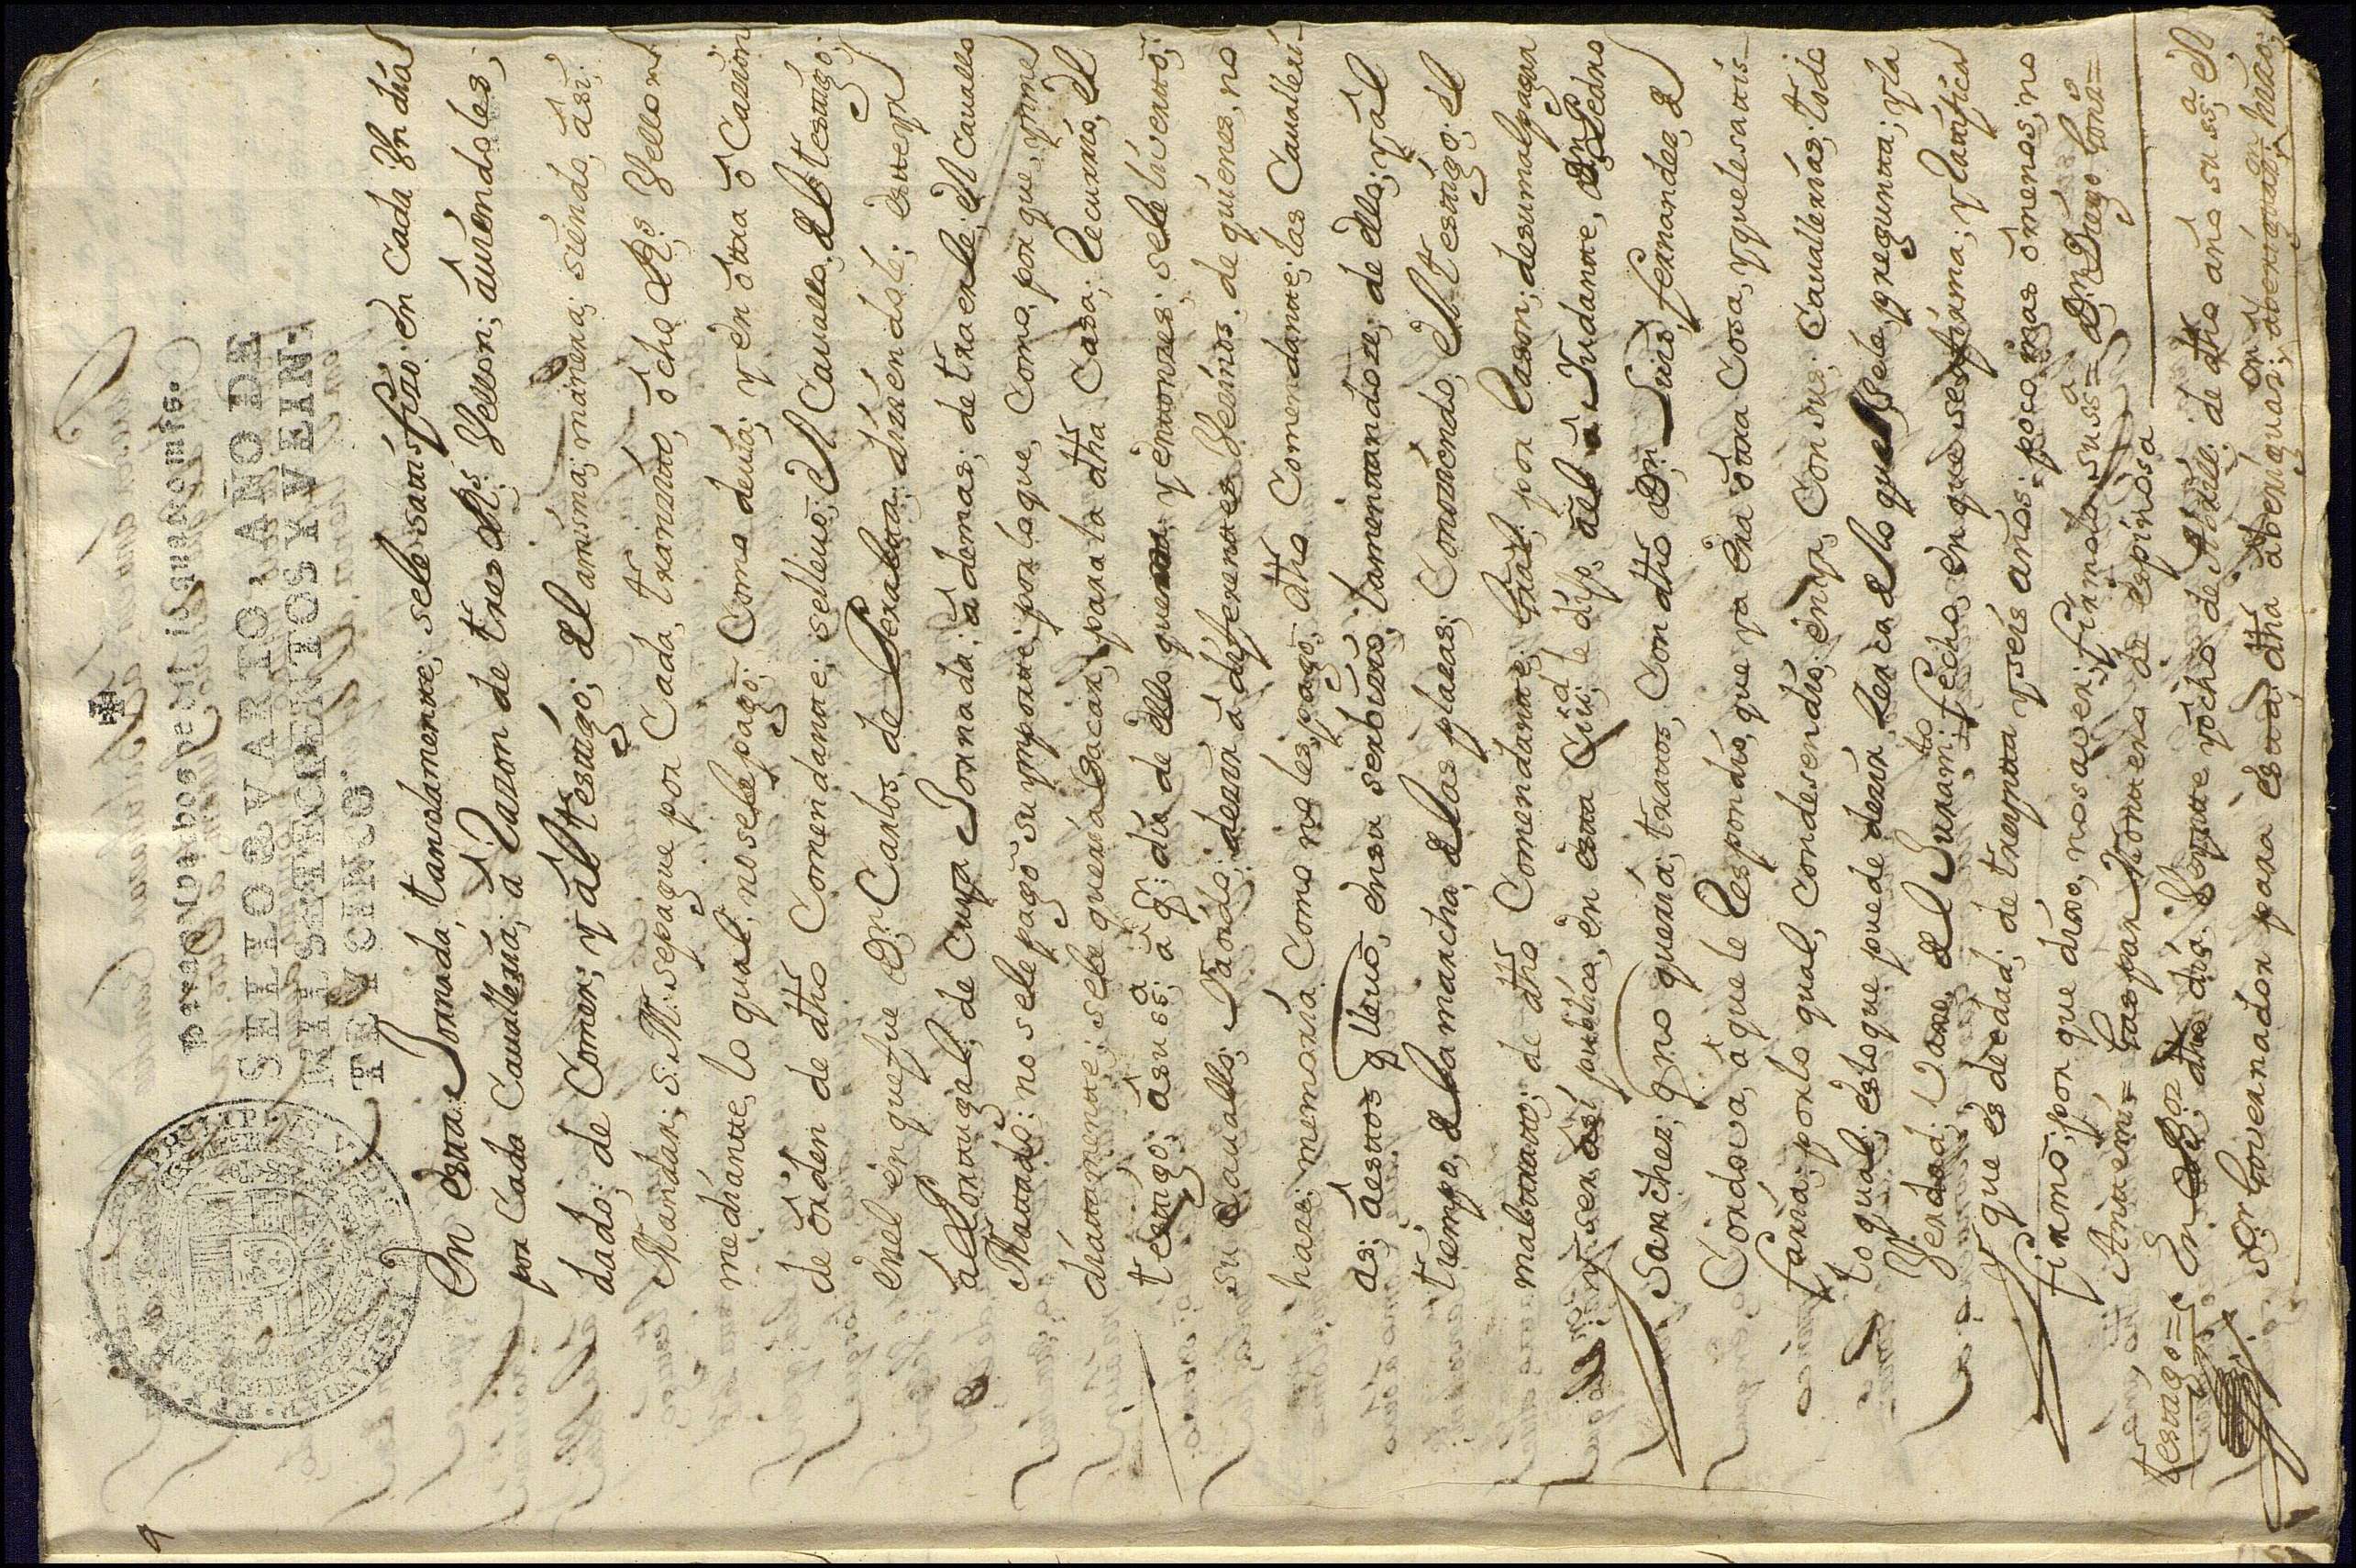 Para despachos de oficio quatro mrs.
SELLO QVARTO, AÑO DE
MIL SETECIENTOS Y VEIN-
TE Y CINCO.
en esta Jornada, tansolamente, sele satisfizo, en cada Vn dia
por cada Cavalleria, á Razon de tres Rs. Vellon; áviendoles,
dado, de Comer, y ál testigo; del amisma, manera, siendo, ási.
Mandar, S.M. sepague por Cada, transito, ócho Rs. Vellon
mediante, lo qual, no sele pagó, Como devia, y en ótra ó Casion
de órden de dho Comendante, sellevó, el Cavallo, del testigo,
enel enque fue Dn. Carlos, de Peralta, sirviendole, 
á Portugal, de Cuya Jornada, á demas, de traerle, el Cavallo
Matado, no sele pagó su ymporte, por lo que, Como, por que, ynme
diatamente, sele queria, Sacar, para la dha Casa, Recurrió, el
testigo, ásu ssa. á qn. dia de ello quexa, y entonzes, sele livertó,
su Cavallo, y á óido, dezir á diferentes Vezinos, de quienes, no
haze memoria Como no les, pagó, dho Comendante, las Cavalleri-
as, á estos q llevó, ensu servizio, lamentandose, de ello, y ál
tiempo, de la marcha, de las plazas, Consiendo, el testigo, el
maltrato, de dho Comendante, por Razon, de su mal pagar
y ser así publico, en esta Ciud. le dijo, ál Ayudante, Dn. Pedro
Sanchez, q no queria, tratos, Con dho Dn. Luis, fernandez, de
Cordova, áque le Respondió, que ya era ótra Cosa, y que le satis-
faria, por lo qual, Condesendió, en yr, Con sus, Cavallerias, todo
lo qual, es lo que puede dezir, Zerca de lo que Sele, pregunta, y la
Verdad, Vajo, del Juramto. fecho, en que se afirma, y Ratifica
Y que és de edad, de treynta y seis años, poco mas ó menos, no
firmó, por que dixo, no saver, firmolo su ssa = Dn. Diego
Antemi = Gaspar Romero de espinosa
testigo = En dho dia Veynte y ócho de Abril, de dho año su ssa. el
Sor. Governador para esta dha áberiguazon hizo,